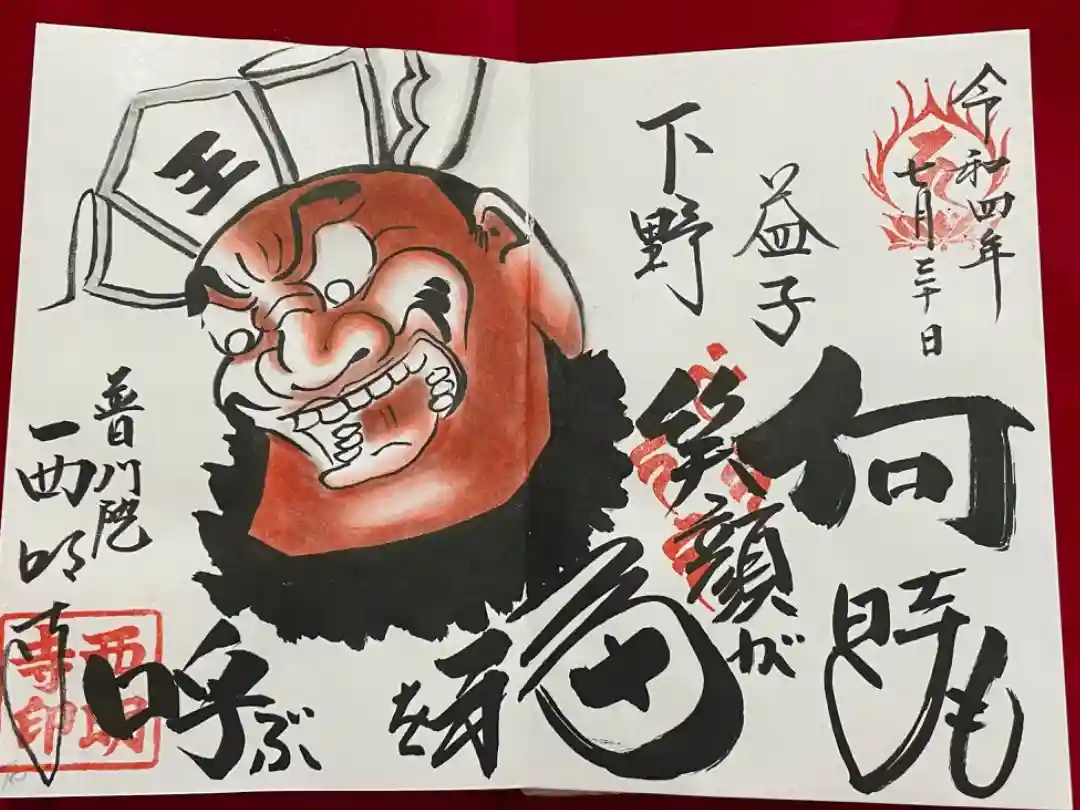 令和四年
七月三十日
何時も
益子
下野
笑顔が
福寿を
呼ぶ
王
普門院
西明寺
西明
寺印